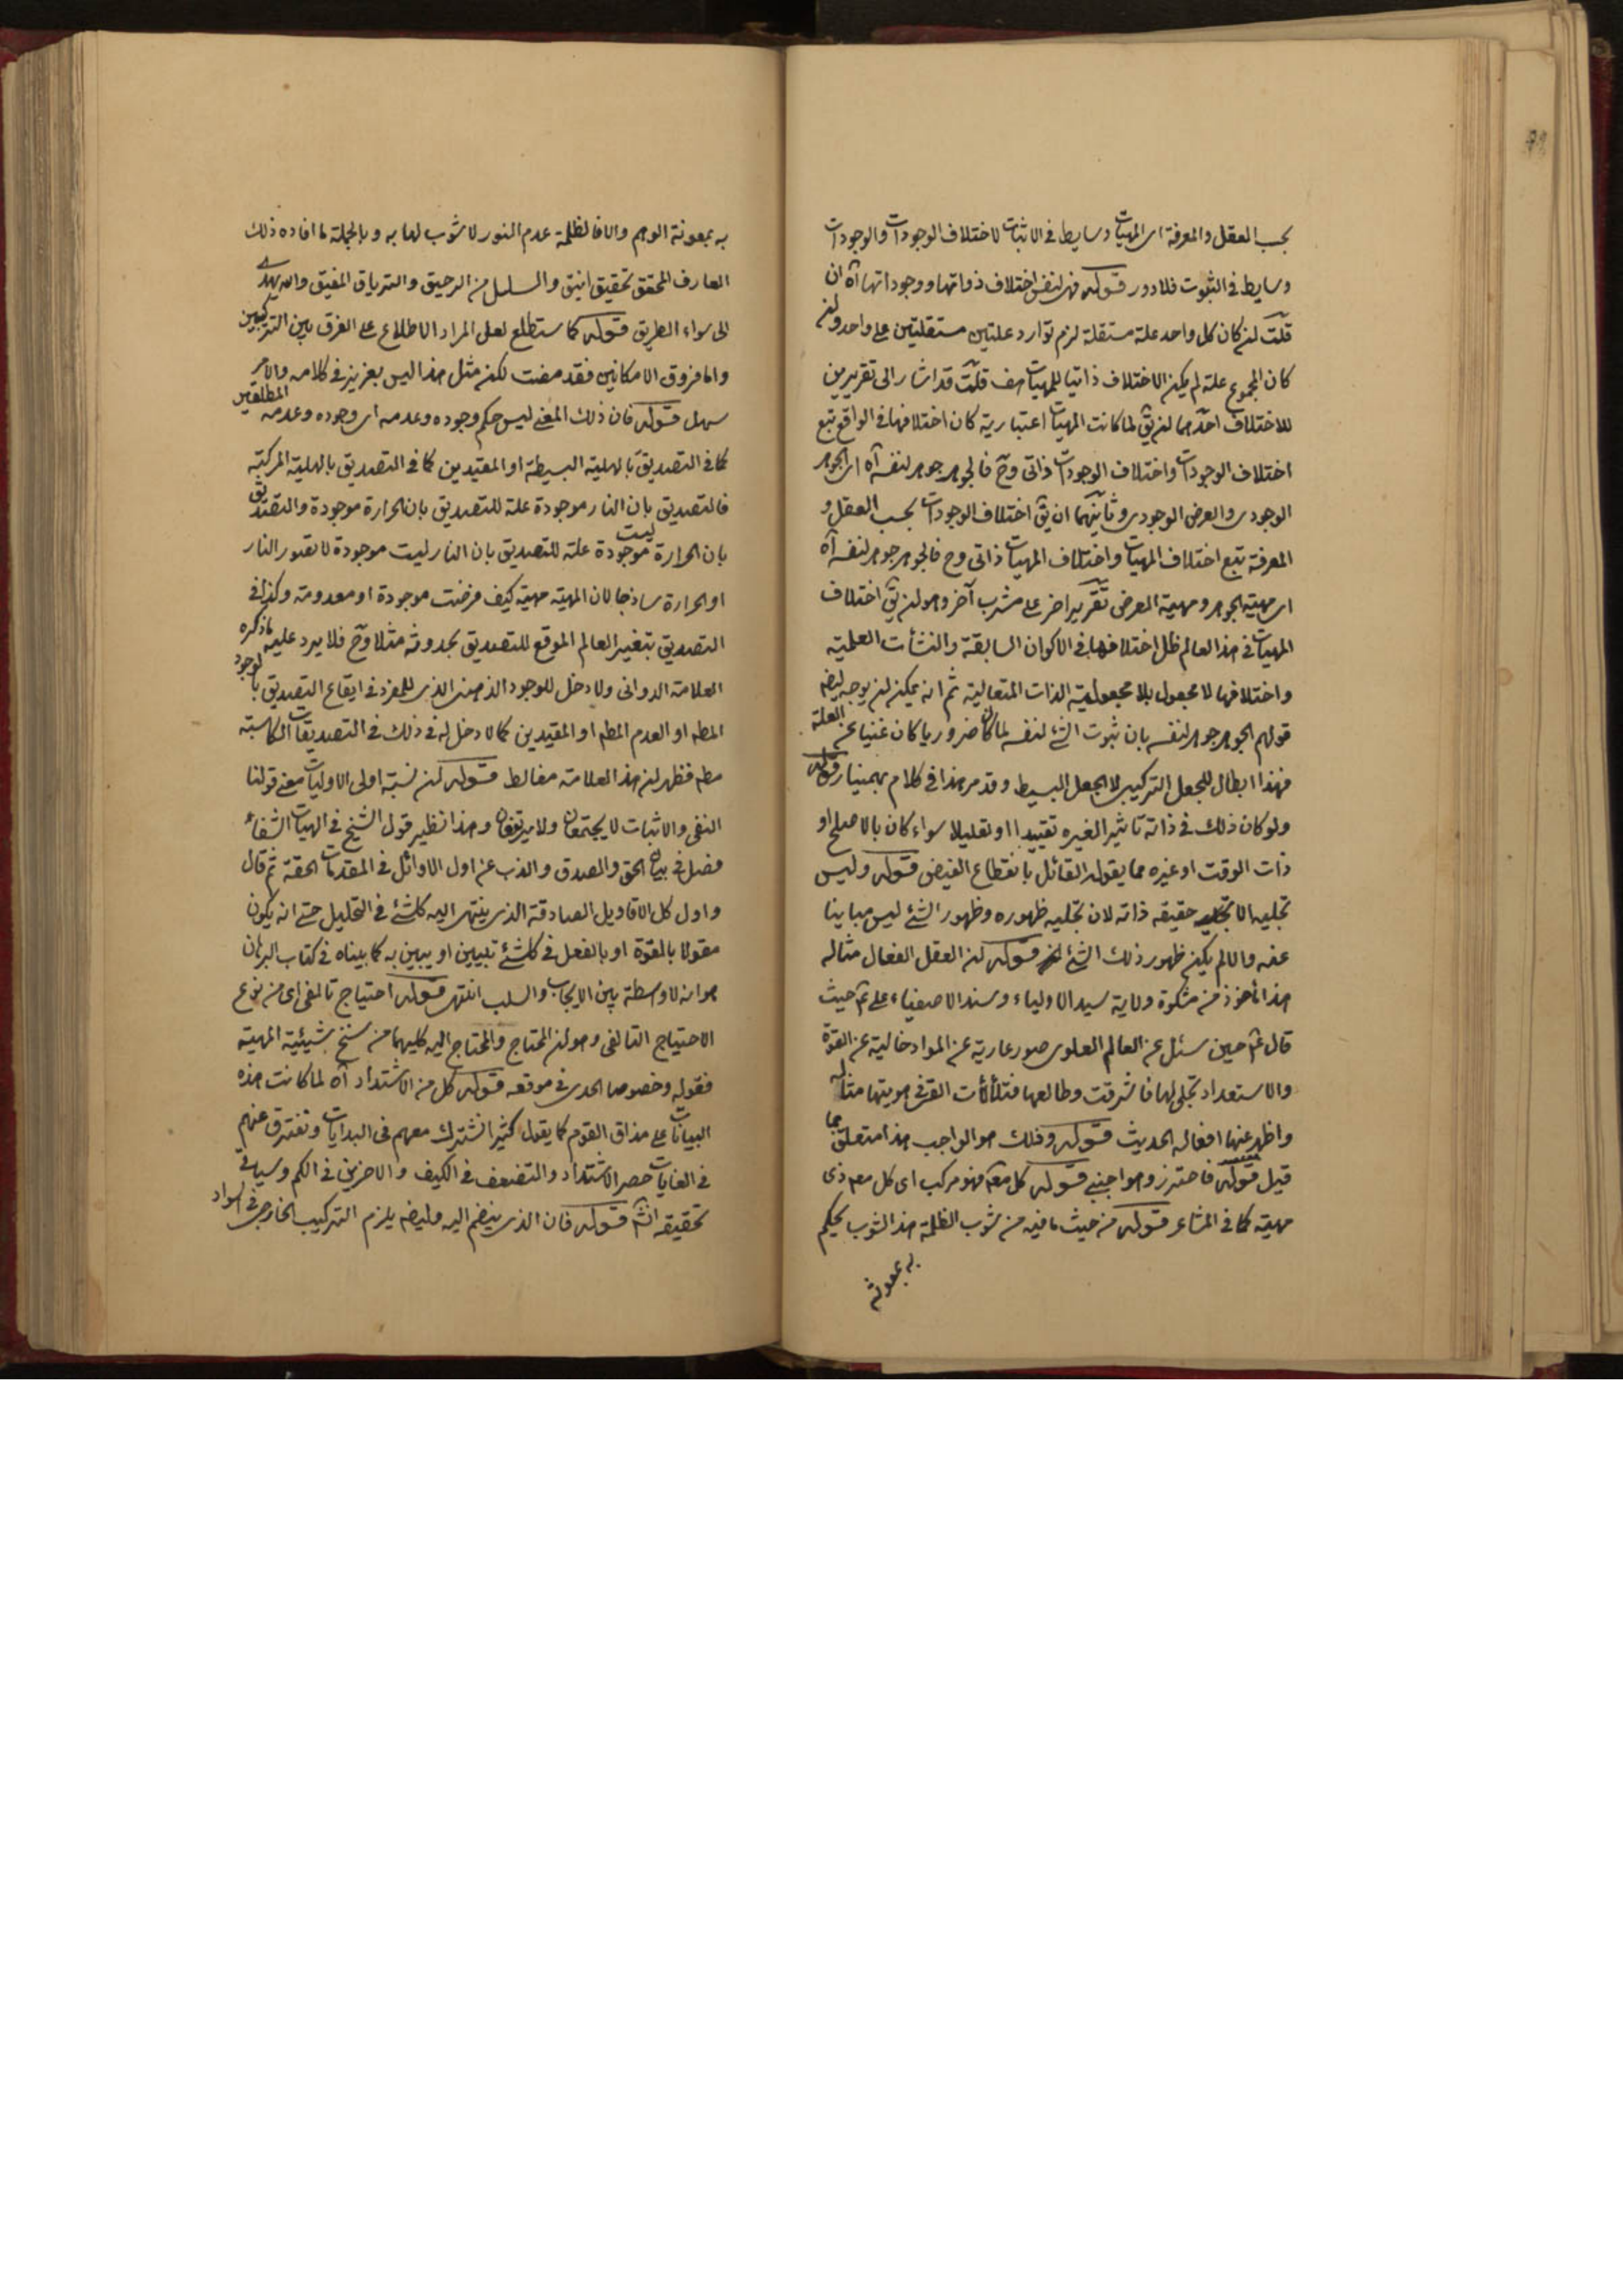 بحسب العقل والمعرفة اى المهيات وسايط فى الاثبات لاختلاف الوجودات والوجودات
وسايط فى الثبوت فلا دور قوله فهى لنفس اختلاف ذواتها ووجوداتها آه ان
قلت لن كان كل واحد علة مستقلة لزم توارد علتين مستقلتين على واحد ولن
كان المجموع علة لم يكن الاختلاف ذاتيا للمهيات هف قلت قد اشار الى تقريرين
للاختلاف احدهما لن يق لما كانت المهيات اعتبارية كان اختلافها فى الواقع تبع
اختلاف الوجودات واختلاف الوجودات ذاتى وح فالجوهر جوهر لنفسه آه اى الجوهر
الوجودى والعرض الوجودى وثانيهما ان يق اختلاف الوجودات بحسب العقل و
المعرفة تبع اختلاف المهيات واختلاف المهيات ذاتى وح فالجوهر جوهر لنفسه آه
اى مهية الجوهر ومهية العرض تقرير اخر على مشرب آخر وهو لن يق اختلاف
المهيات فى هذا العالم ظل اختلافها فى الاكوان السابقة والنشأت العلمية
واختلافها لا مجعول بلا مجعولية الذات المتعالية ثم انه يمكن لن يوجه ايضا
قولهم الجوهر جوهر لنفسه بان ثبوت الشئ لنفسه لما كان ضروريا كان غنيا عن العلة
فهذا ابطال للجعل التركيبى لا الجعل البسيط وقد مر هذا فى كلام بهمنيار قوله
ولو كان ذلك فى ذاته تاثير الغيره تقييدا او تعليلا سواء كان بالاصلح او
ذات الوقت او غيره مما يقوله القائل بانقطاع الفيض قوله وليس
تجليه الا حقيقه ذاته لان تجليه ظهوره وظهور الشئ ليس مباينا
عنه والا لم يكن ظهور ذلك الشئ قوله لن العقل الفعال مثاله
هذا مأخوذ من مشكوة ولاية سيد الاولياء وسند الاصفياء على ع حيث
قال ع حين سئل عن العالم العلوى صور عارية عن المواد خالية عن القوة
والاستعداد تجلى لها فاشرقت وطالعها فتلألأت القى فى هويتها مثاله
واظهر عنها افعاله الحديث قوله وفلك هو الواجب هذا متعلق بما
قيل قوله فاحترز وهو اجنبى قوله كل معه فهو مركب اى كل معه ذى
مهية كما فى المشاعر قوله من حيث ما فيه من شوب الظلمة هذا الشوب بحكم
به بمعونة
به بمعونة الوهم والا فالظلمة عدم النور لا شوب لها به وبالجملة ما افاده ذلك
العارف المحقق تحقيق انيق والسلسل من الرحيق والترياق المفيق والله يهدى
الى سواء الطريق قوله كما ستطلع لعل المراد الاطلاع على الفرق بين التركيبين
واما فروق الامكانين فقد مضت لكن مثل هذا ليس بعزيز فى كلامه والامر
سهل قوله فان ذلك المعنى ليس حكم وجوده وعدمه اى وجوده وعدمه المطلقين
كما فى التصديق بالهلية البسيطة او المقيدين كما فى التصديق بالهلية المركبة
فالتصديق بان النار موجودة علة للتصديق بان الحرارة موجودة والتصديق
بان الحرارة ليست موجودة علة للتصديق بان النار ليست موجودة لا تصور النار
او الحرارة ساذجا لان المهية مهية كيف فرضت موجودة او معدومة وكذا فى
التصديق بتغير العالم الموقع للتصديق بحدوثه مثلا وح فلا يرد عليه ما ذكره
العلامة الدوانى ولا دخل للوجود الذهنى الذى للمفرد فى ايقاع التصديق بالوجود
المطه او العدم المطه او المقيدين كما لا دخل له فى ذلك فى التصديقات الكاسبة
مطه فظهر لن هذا العلامة مغالط قوله لن نسبة اولى الاوليات معنى قولنا
النفى والاثبات لا يجتمعان ولا يرتفعان وهذا نظير قول الشيخ فى الهيات الشفاء
فصل فى بيان الحق والصدق والذب عن اول الاوائل فى المقدمات الحقة ثم قال
واول كل الاقاويل الصادقة الذى ينتهى اليه كل شئ فى التحليل حتى انه يكون
مقولا بالقوة او بالفعل فى كل شئ تبيين او يبين به كما بيناه فى كتاب البرهان
هو انه لا واسطة بين الايجاب والسلب انتهى قوله احتياج تالفى اى من نوع
الاحتياج التالفى وهو لن المحتاج والمحتاج اليه كليهما من سنخ شيئية المهية
فقوله وخصوصا الحدى فى موقعه قوله كل من الاشتداد آه لما كانت هذه
البيانات على مذاق القوم كما يقول كثيرا نشترك معهم فى البدايات ونفترق عنهم
فى الغايات حصر الاشتداد والتضعف فى الكيف والاخرين فى الكم وسياتى
تحقيقه انشا قوله فان الذى ينضم اليه وايضا يلزم التركيب الخارجى فى المواد